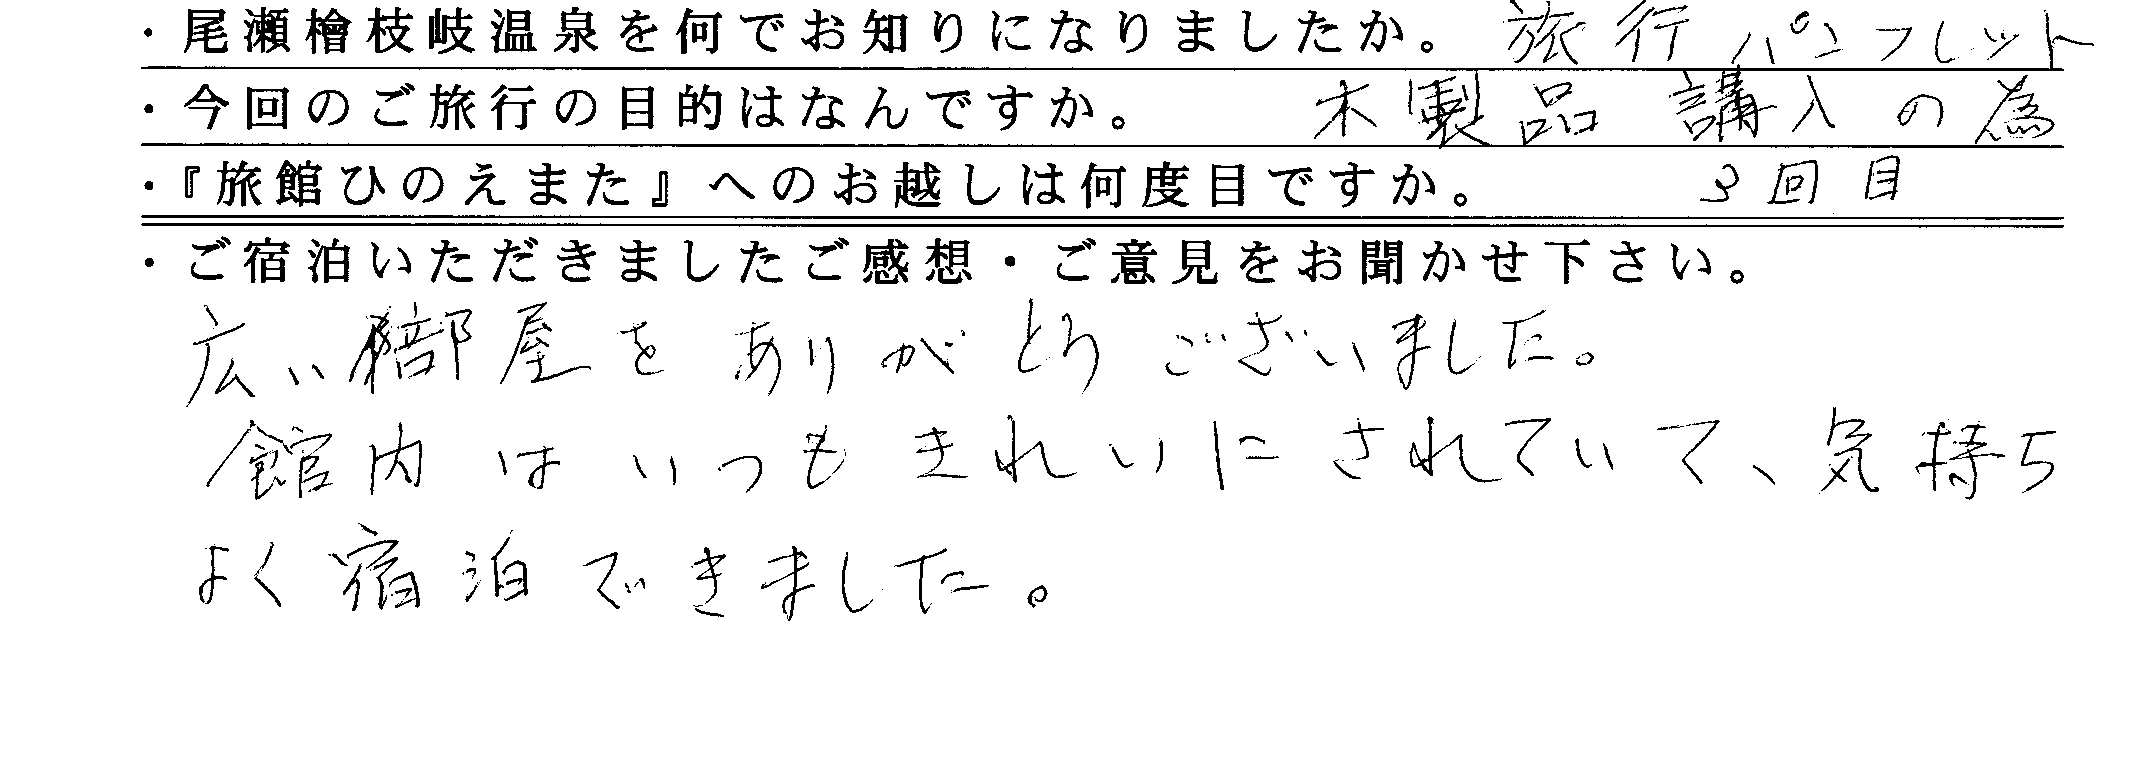 ・尾瀬檜枝岐温泉を何でお知りになりましたか。 旅行パンフレット
・今回のご旅行の目的はなんですか。 木製品講入の為
・『旅館ひのえまた』へのお越しは何度目ですか。 3回目
・ご宿泊いただきましたご感想・ご意見をお聞かせ下さい。
広い部屋をありがとうございました。
館内はいつもきれいにされていて、気持ち
よく宿泊できました。